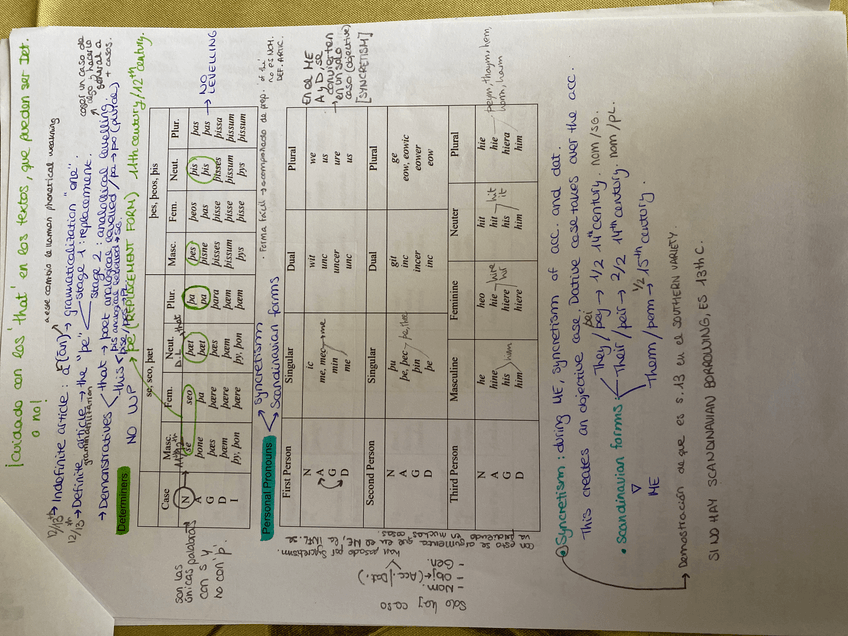 ¡cuidado con los 'that' en los textos, que pueden ser Det.
o no!
12/13th → Indefinite article: a[an] → grammaticalization "one"
a este cambio le llaman phonetical weakning
12/13th → Definite article → the "þe"
grammaticalization
stage 1: replacement.
stage 2: analogical levelling
coger un caso de
algo y hacerlo
general a
+ casos.
→ Demonstratives
that → þaet analogical levelled / þa → þo (plural)
this
NO WP → þe (REPLACEMENT FORM) 11th century/12th century.
Determiners
se, seo, þæt
þes, þeos, þis
Case Masc. Fem. Neut. Plur. Masc. Fem. Neut. Plur.
N se seo þæt þa þes þeos þis þas
A þone þa þæt þa þisne þas þis þas
G þæs þære þæs þara þisses þisse þisses þissa
D þæm þære þæm þæm þissum þisse þissum þissum
I þy, þon þære þy, þon þæm þys þisse þys þissum
that
→ NO
LEVELLING
son las
únicas palabras
con s y
no con 'þ'.
Personal Pronouns
Syncretism
Scandinavian forms
First Person Singular Dual Plural
N ic wit we
A me, mec unc us
G min uncer ure
D me unc us
→ me
En el ME
A y D, se
convierten
en un solo
caso (objective)
[SYNCRETISM]
Second Person Singular Dual Plural
N þu git ge
A þe, þec inc eow, eowic
G þin incer eower
D þe inc eow
Third Person Masculine Feminine Neuter Plural
N he heo hit hie
A hine hie hit hie
G his hiere his hiera
D him hiere him him
hit
it
Solo hay caso
- Nom.
- Obj (Acc./Dat.)
- Gen.
han pasado por syncretism.
• Syncretism: during ME, syncretism of acc. and dat.
This creates an objective case. Dative case takes over the acc.
• Scandinavian forms
They / þey → 1/2 14th century. nom/sg.
þei
Their / þeir → 2/2 14th century. nom/pl.
Theim / þem → 1/2 15th century.
ME
Demostración de que es s.13 en el SOUTHERN VARIETY.
SI NO HAY SCANDINAVIAN BORROWING, ES 13th C.